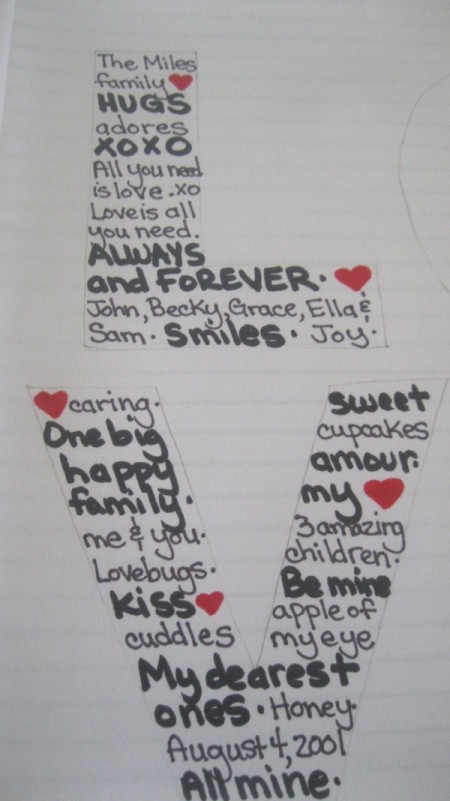 The Miles
family
HUGS
adores
XOXO
All you need
is love .xo
Love is all
you need.
ALWAYS
and FOREVER.
John, Becky, Grace, Ella &
Sam. Smiles. Joy.
caring.
One big
happy
family.
me & you.
Lovebugs.
Kiss
cuddles
sweet
cupcakes
amour.
my
3 amazing
children.
Be mine
apple of
my eye
My dearest
ones. Honey.
August 4, 2001
All mine.